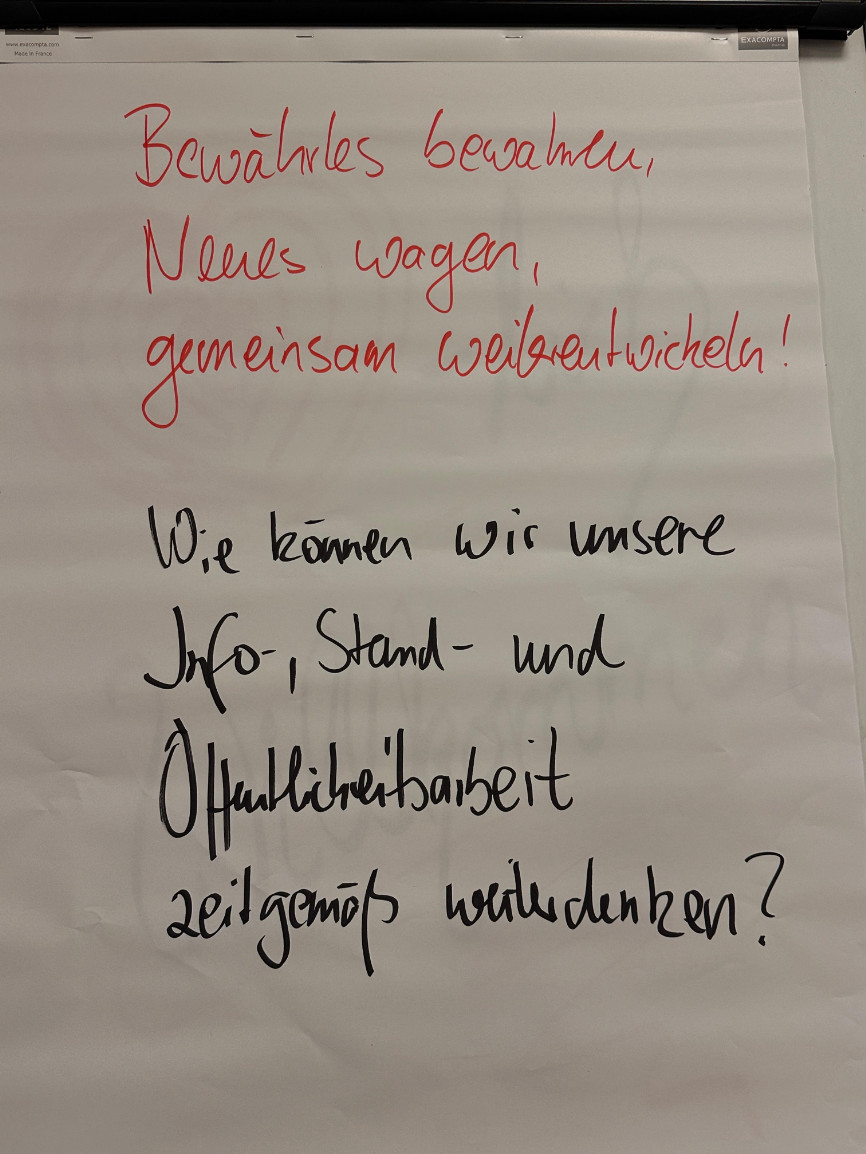 www.exacompta.com
Made in France
EXACOMPTA
Bewährtes bewahren,
Neues wagen,
gemeinsam weiterentwickeln!
Wie können wir unsere
Info-, Stand- und
Öffentlichkeitsarbeit
zeitgemäß weiterdenken?